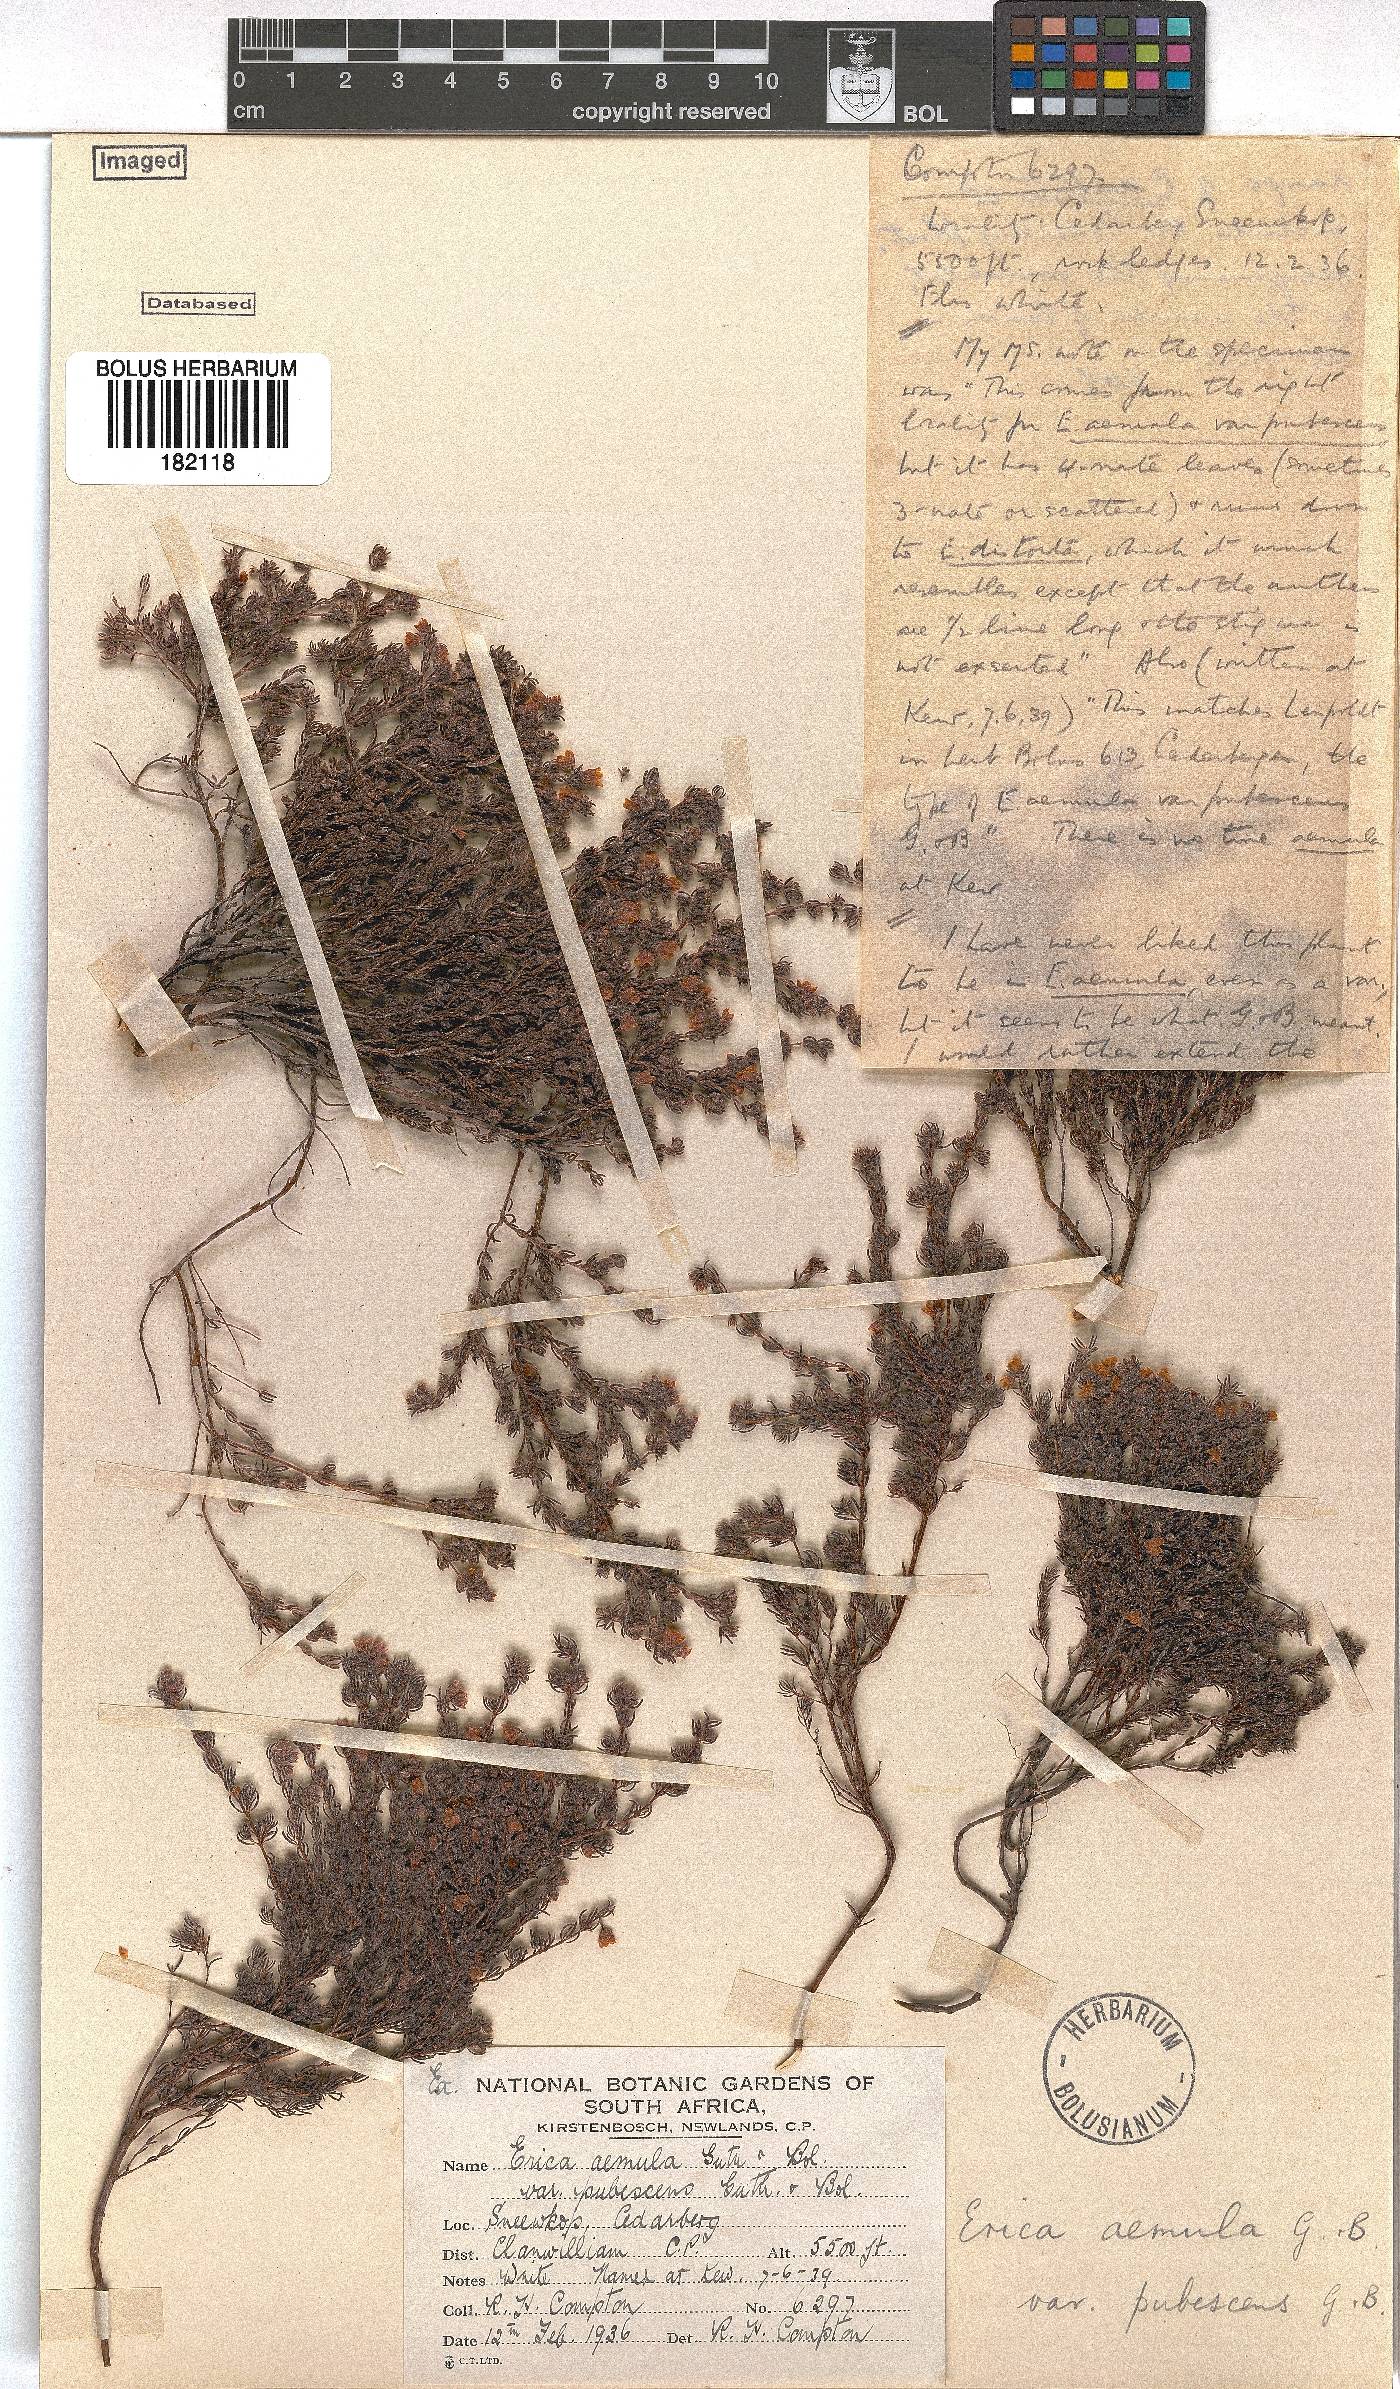 0 1 2 3 4 5 6 7 8 9 10
cm copyright reserved BOL
Imaged
Databased
BOLUS HERBARIUM
182118
Compton 6297.
Locality: Cedarberg Sneeuwkop,
5500 ft., rock ledges. 12.2.36.
Fls white.
My MS. note on the specimen
was "This comes from the right
locality for E aemula var pubescens,
but it has 4-nate leaves (sometimes
3-nate or scattered) & runs down
to E. distorta, which it much
resembles except that the anthers
are 1/2 line long & the stigma is
not exserted" Also (written at
Kew, 7.6.39) "This matches Leipoldt
in herb Bolus 613 Cedarbergen, the
type of E aemula var pubescens
G. & B" There is no true aemula
at Kew
I have never liked this plant
to be in E. aemula, even as a var,
but it seems to be what G & B meant.
I would rather extend the
Ex. NATIONAL BOTANIC GARDENS OF
SOUTH AFRICA,
KIRSTENBOSCH, NEWLANDS, C.P.
Name Erica aemula Guth. & Bol.
var. pubescens Guth. & Bol.
Loc. Sneewkop, Cedarberg
Dist. Clanwilliam C.P. Alt. 5500 ft.
Notes White Named at Kew. 7-6-39
Coll. R. H. Compton No. 6297
Date 12th Feb. 1936 Det R. H. Compton
C.T.LTD.
HERBARIUM
BOLUSIANUM
Erica aemula G. & B.
var. pubescens G. & B.